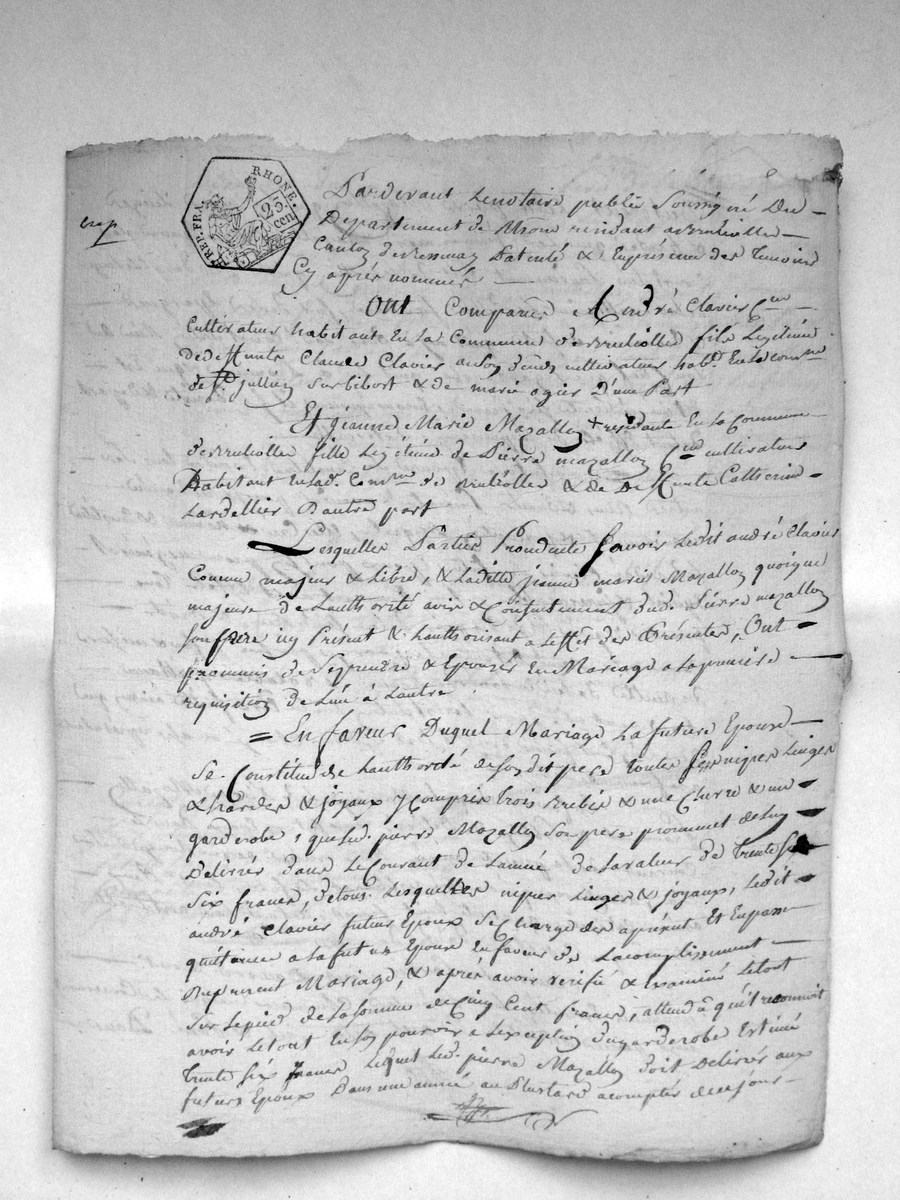 REP. FRA. RHONE.
25 cen
Pardevant Le notaire public Soussigné Du
Departement de Rhone residant a
Canton de Patenté & En présence des Temoins
Cy après nommés
Ont Comparus André Clavier Cen
Cultivateur habitant En La Commune fils Légitime
de deffunts Claude Clavier cultivateur habt En la comne
de St jullien Sur bibort & de marie ogier D'une Part
Et jeanne Marie Mazallon residante En La Commune
fille Légitime de Pierre mazallon Cen cultivateur
Habitant En lad. Comne de & de Deffunte Catherine
Lardellier D'autre part
Lesquelles Parties Procédante Savoir Ledit andré Clavier
Comme majeur & Libre, & Laditte jeanne marie Mazallon quoique
majeure de Lauthorité avis & Consentement dud. Pierre mazallon
son pere icy Présent & Lauthorisant a Leffet des Présentes, Ont
prommis de Se prendre & Epouzer En Mariage a La premiere
requisition de L'un à Lautre
= En faveur Duquel Mariage La future Epouse
Se Constitue de Lauthorité de son dit pere toutes Ses nipes Linges
& hardes & joyaux y Compris trois brebis & une Chevre & une
garderobe que led. pierre Mazallon Son pere prommet de Luy
Délivrer dans Le Courant de Lannée de la valeur de Trente Six
Six francs, de tous Lesquelles nipes Linges & joyaux, Ledit
andré Clavier futur Epoux Se Charge dès aprésent Et En passe
quittance a La future Epouse En faveur de Lacomplissement
Du present Mariage, & après avoir verifié & Examiné Le tout
Sur Le pied de La Somme de Cinq Cent francs, attendu qu'il reconnoit
avoir Le tout En Son pouvoir a Lexception du garderobe Estimé
trente Six francs Lequel Led. pierre Mazallon doit Délivrer aux
futurs Epoux Dans une année au Plustard a compter de ce jour